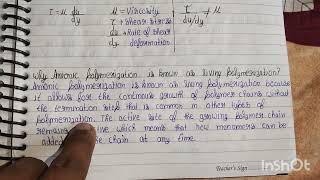 τ = μ du/dy
μ = Viscosity
τ = Shear stress
du/dy = Rate of shear
deformation
τ / du/dy = μ
Why Anionic polymerization is known as living Polymerization?
Anionic polymerization is known as living polymerization because
it allows for the continuous growth of polymer chains without
the termination step that is common in other types of
polymerization. The active site of the growing polymer chain
remains active which means that new monomers can be
added the chain at any time.
Teacher's Sign
InShOt